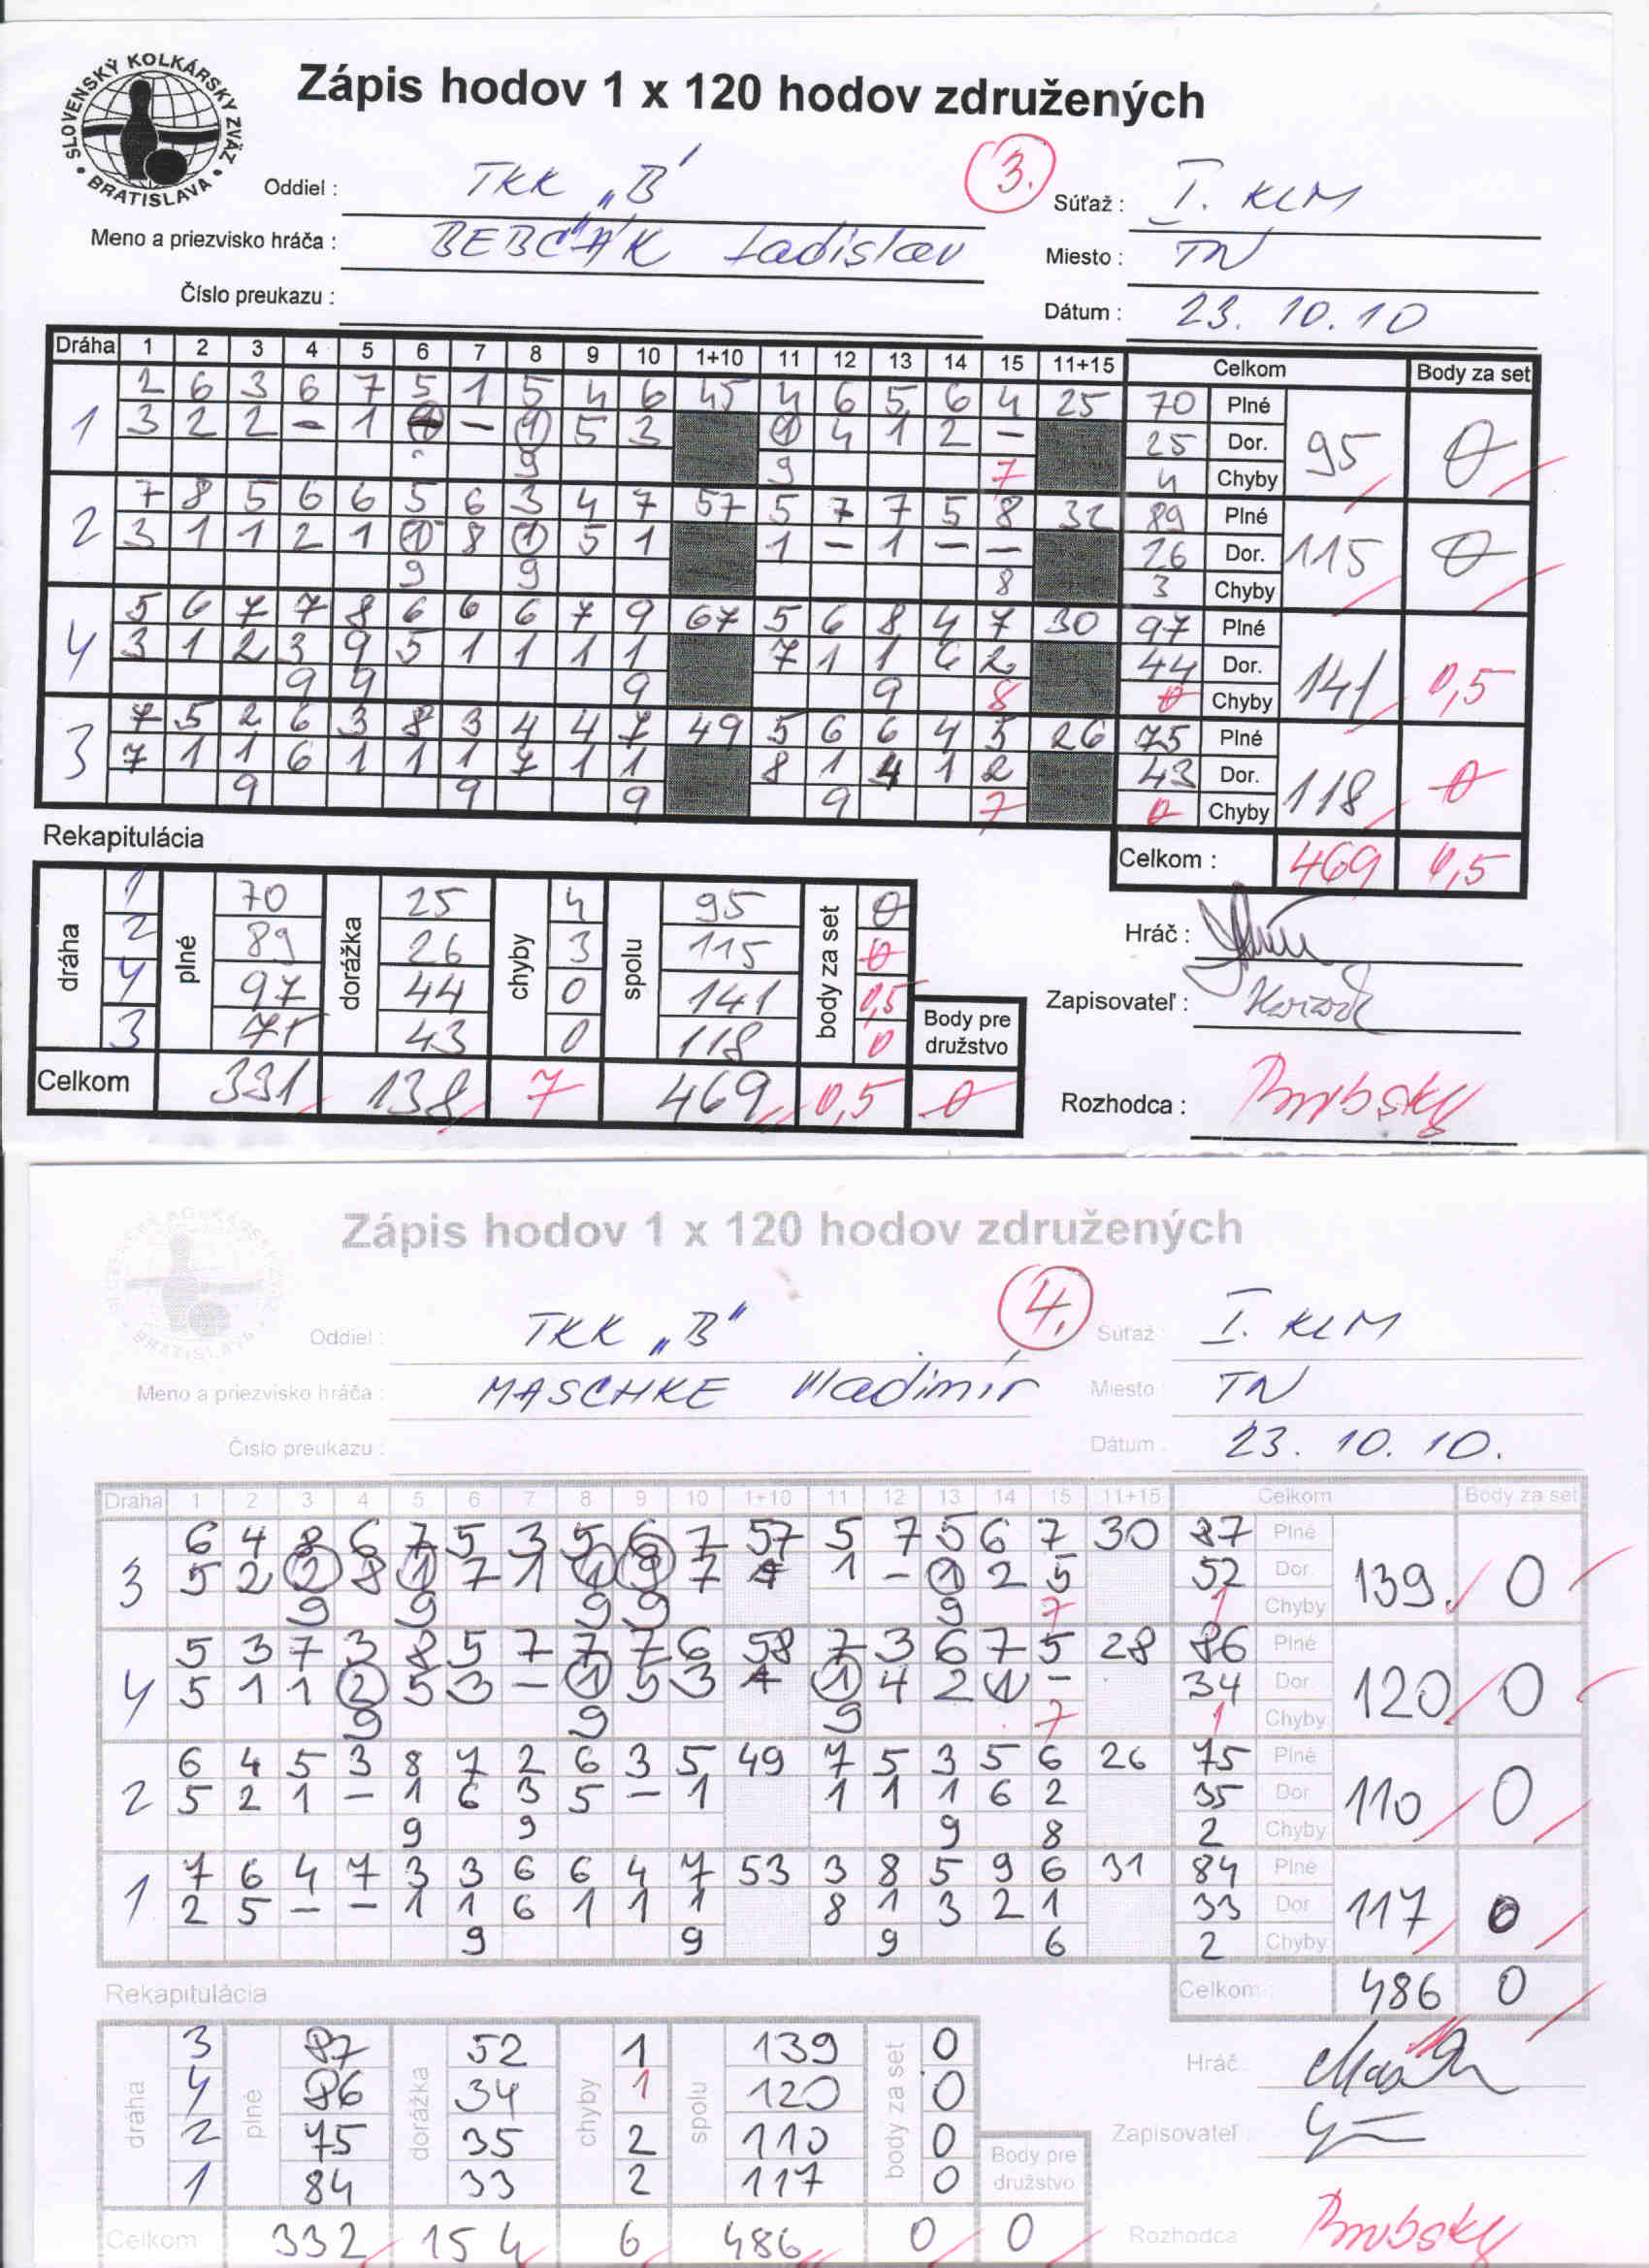 SLOVENSKÝ KOLKÁRSKY ZVÄZ • BRATISLAVA •
Zápis hodov 1 x 120 hodov združených
3.
Oddiel : TKK „B" Súťaž : I. KLM
Meno a priezvisko hráča : BEBČÁK Ladislav Miesto : TN
Číslo preukazu : Dátum : 23. 10. 10
Dráha 1 2 3 4 5 6 7 8 9 10 1+10 11 12 13 14 15 11+15 Celkom Body za set
1 2 6 3 6 7 5 1 5 4 6 45 4 6 5 6 4 25 70 Plné 95 0
3 2 2 - 1 - 1 5 3 1 4 1 2 - 25 Dor.
9 9 7 4 Chyby
2 7 8 5 6 6 5 6 3 4 7 57 5 7 7 5 8 32 89 Plné 115 0
3 1 1 2 1 1 8 1 5 1 1 - 1 - - 26 Dor.
9 9 8 3 Chyby
4 5 6 7 7 8 6 6 6 7 9 67 5 6 8 4 7 30 97 Plné 141 0,5
3 1 2 3 9 5 1 1 1 1 7 1 1 6 2 44 Dor.
9 9 9 9 8 0 Chyby
3 7 5 2 6 3 8 3 4 4 7 49 5 6 6 4 5 26 75 Plné 118 0
7 1 1 6 1 1 1 7 1 1 8 1 4 1 2 43 Dor.
9 9 9 9 7 0 Chyby
Celkom : 469 0,5
Rekapitulácia
dráha 1 plné 70 dorážka 25 chyby 4 spolu 95 body za set 0
2 89 26 3 115 0
4 97 44 0 141 0,5
3 75 43 0 118 0
Body pre družstvo
Celkom 331 138 7 469 0,5 0
Hráč :
Zapisovateľ :
Rozhodca :
Zápis hodov 1 x 120 hodov združených
4.
Oddiel : TKK „B" Súťaž : I. KLM
Meno a priezvisko hráča : MASCHKE Vladimír Miesto TN
Číslo preukazu : Dátum : 23. 10. 10.
Dráha 1 2 3 4 5 6 7 8 9 10 1+10 11 12 13 14 15 11+15 Celkom Body za set
3 6 4 8 6 7 5 3 5 6 7 57 5 7 5 6 7 30 87 Plné 139 0
5 2 2 8 1 7 1 1 9 7 1 - 1 2 5 52 Dor
9 9 9 9 9 7 1 Chyby
4 5 3 7 3 8 5 7 7 7 6 58 7 3 6 7 5 28 86 Plné 120 0
5 1 1 2 5 3 - 1 5 3 1 4 2 1 - 34 Dor
9 9 9 7 1 Chyby
2 6 4 5 3 8 7 2 6 3 5 49 7 5 3 5 6 26 75 Plné 110 0
5 2 1 - 1 6 3 5 - 1 1 1 1 6 2 35 Dor
9 9 9 8 2 Chyby
1 7 6 4 7 3 3 6 6 4 7 53 3 8 5 9 6 31 84 Plné 117 0
2 5 - - 1 1 6 1 1 1 8 1 3 2 1 33 Dor
9 9 9 6 2 Chyby
Celkom : 486 0
Rekapitulácia
dráha 3 plné 87 dorážka 52 chyby 1 spolu 139 body za set 0
4 86 34 1 120 0
2 75 35 2 110 0
1 84 33 2 117 0
Body pre družstvo
Celkom 332 154 6 486 0 0
Hráč :
Zapisovateľ :
Rozhodca